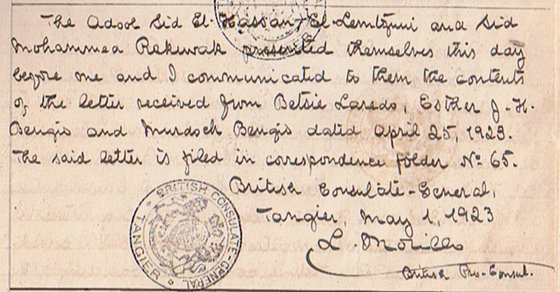 The Adool Sid El Hassan El Lemtzuni and Sid
Mohammed Rakuwak presented themselves this day
before me and I communicated to them the contents
of the letter received from Betsie Laredo, Esther J. H.
Bengio and Murdoch Bengio dated April 25, 1923.
The said letter is filed in correspondence folder No 65.
British Consulate-General,
Tangier May 1, 1923
L. Morillo
British Pro-Consul.
BRITISH CONSULATE-GENERAL
TANGIER